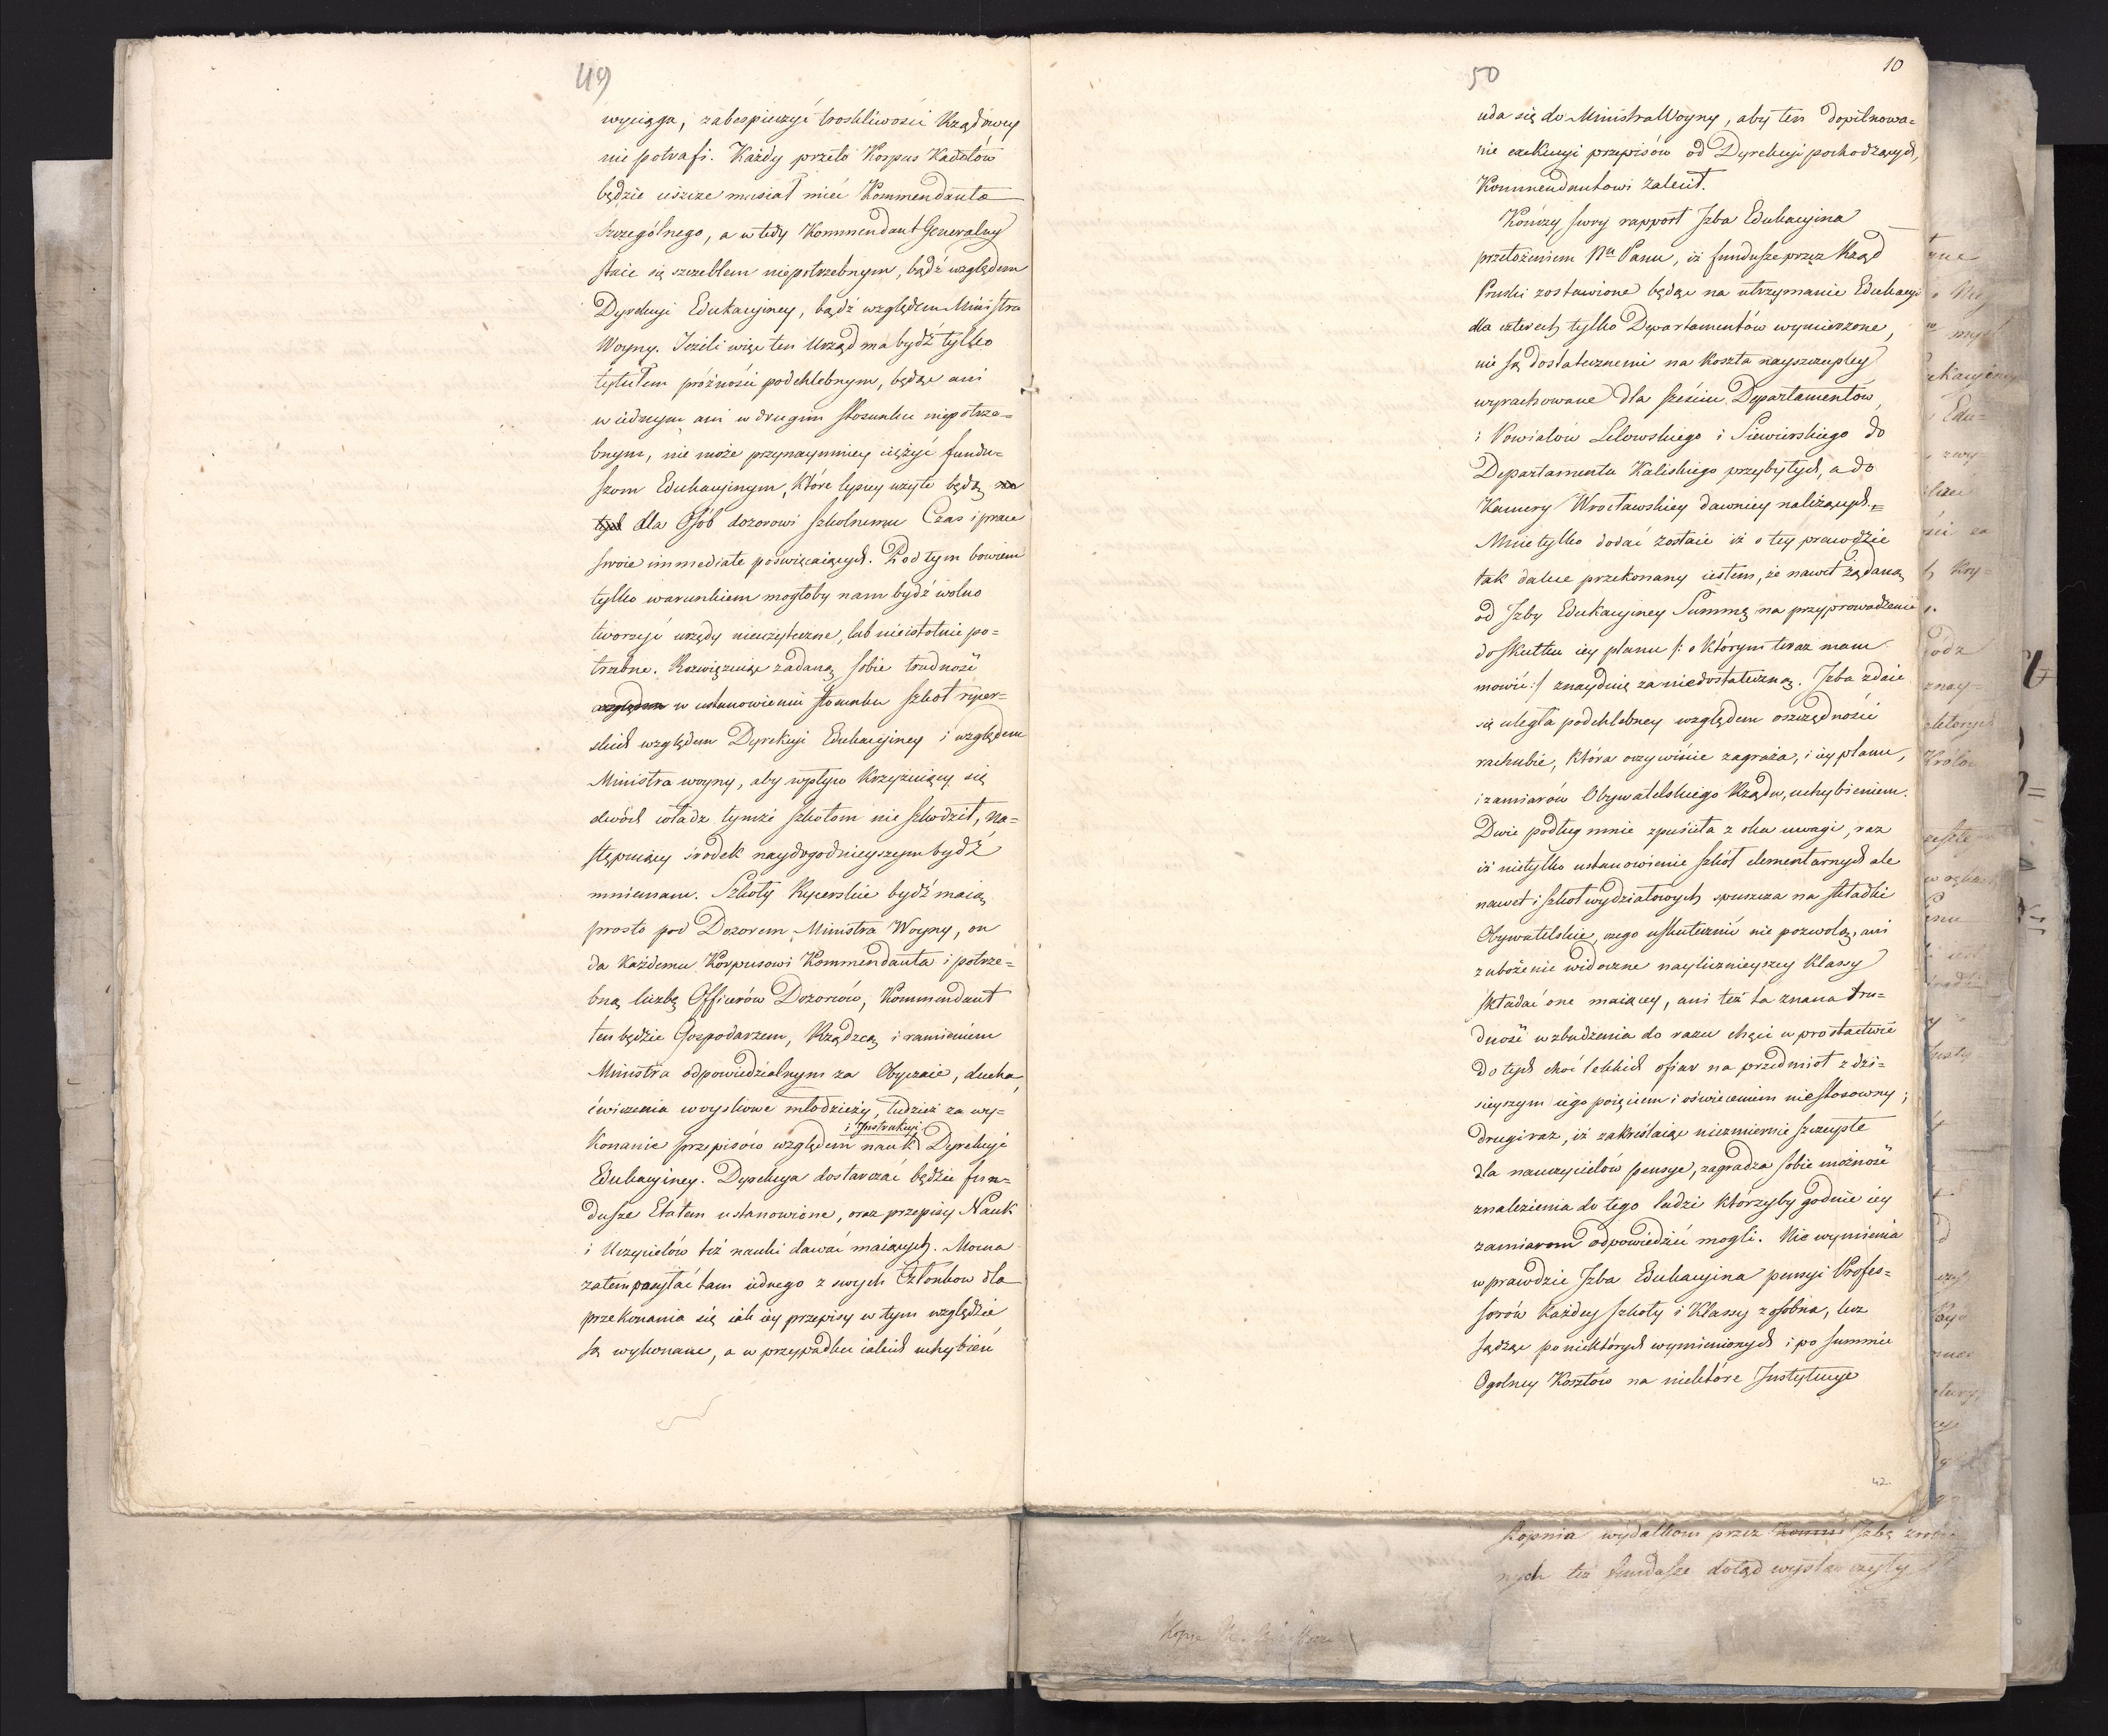 49
wyciąga, zabespieczyć troskliwości Rządowey
nie potrafi. Każdy przeto Korpus Kadetów
będzie ieszcze musiał mieć Kommendanta
szczególnego, a wtedy Kommendant Generalny
staie się szczeblem niepotrzebnym, bądź względem
Dyrekcyi Edukacyiney, bądź względem Ministra
Woyny. Jeżeli więc ten Urząd ma bydź tylko
tytułem próżności podchlebnym, będąc ani
w iednym ani w drugim stosunku niepotrze=
bnym, nie może przynaymniey ciężyć fundu=
szom Edukacyinym, które lepiey użyte będą na
tych dla Osób dozorowi szkolnemu Czas i prace
swoie immediate poświęcaiących. Pod tym bowiem
tylko warunkiem mogłoby nam bydź wolno
tworzyć urzędy nieużyteczne, lub nieistotnie po=
trzebne. Rozwięzuiąc zadaną sobie trudność
względem w ustanowieniu stosunku szkół rycer=
skich względem Dyrekcyi Edukacyiney i względem
Ministra woyny, aby wpływ krzyżuiący się
dwóch władz tymże szkołom nie szkodził, na=
stępuiący środek naydogodnieyszym bydź
mniemam. Szkoły Rycerskie bydź maią
prosto pod Dozorem Ministra Woyny, on
da każdemu Korpusowi Kommendanta i potrze=
bną liczbę Officerów Dozorców, Kommendant
ten będzie Gospodarzem, Rządzcą i ramieniem
Ministra odpowiedzialnym za Obyczaie, ducha,
ćwiczenia woyskowe młodzieży, tudzież za wy=
i Instrukcyi
konanie przepisów względem nauk Dyrekcyi
Edukacyiney. Dyrekcya dostarczać będzie fun=
dusze Etatem ustanowione, oraz przepisy Nauk
i Uczycielów też nauki dawać maiących. Mocna
zatem posyłać tam iednego z swych Członkow dla
przekonania się iak iey przepisy w tym względzie
są wykonane, a w przypadku iakich uchybień
50
10
uda się do Ministra Woyny, aby ten dopilnowa=
nie exekucyi przepisów od Dyrekcyi pochodzących,
Kommendantowi zalecił.
Kończy swoy rapport Izba Edukacyina
przełożeniem Na Panu, iż fundusze przez Rząd
Pruski zostawione będąc na utrzymanie Edukacyi
dla czterech tylko Departamentów wymierzone,
nie są dostatecznemi na koszta nayszczupley
wyrachowane dla sześciu Departamentów,
i Powiatów Lelowskiego i Siewierskiego do
Departamentu Kaliskiego przybyłych, a do
Kamery Wrocławskiey dawniey należących.=
Mnie tylko dodać zostaie iż o tey prawdzie
tak dalece przekonany iestem, że nawet żądaną
od Izby Edukacyiney Summę na przyprowadzenie
do skutku iey planu /: o którym teraz mam
mowić :/ znayduię za niedostateczną. Izba zdaie
się uległa podchlebney względem oszczędności
rachubie, która oczywiście zagraża, i iey planu,
i zamiarów Obywatelskiego Rządu, uchybieniem.
Dwie podług mnie spuściła z oka uwagi, raz
iż nietylko ustanowienie szkół elementarnych ale
nawet i szkół wydziałowych spuszcza na składki
Obywatelskie, czego uskutecznić nie pozwolą, ani
zubożenie widoczne nayliczniejszey klassy
składać one maiącey, ani też ta znana tru=
dność wzbudzenia do razu chęci w prostactwie
do tych choć lekkich ofiar na przedmiot z dzi=
sieyszym iego poięciem i oświeceniem niestosowny;
drugi raz, iż zakreślaiąc niezmiernie szczupłe
dla nauczycielów pensye, zagradza sobie możność
znalezienia do tego ludzi którzyby godnie iey
zamiarom odpowiedzieć mogli. Nie wymienia
wprawdzie Izba Edukacyina pensyi Profes=
sorów każdey szkoły i Klassy z osobna, lecz
sądząc po niektórych wymienionych i po summie
Ogolney Kosztów na niektóre Instytucye
42.
stopnia wydatkom przez Izbę
nych też fundusze dotąd wystarczyły